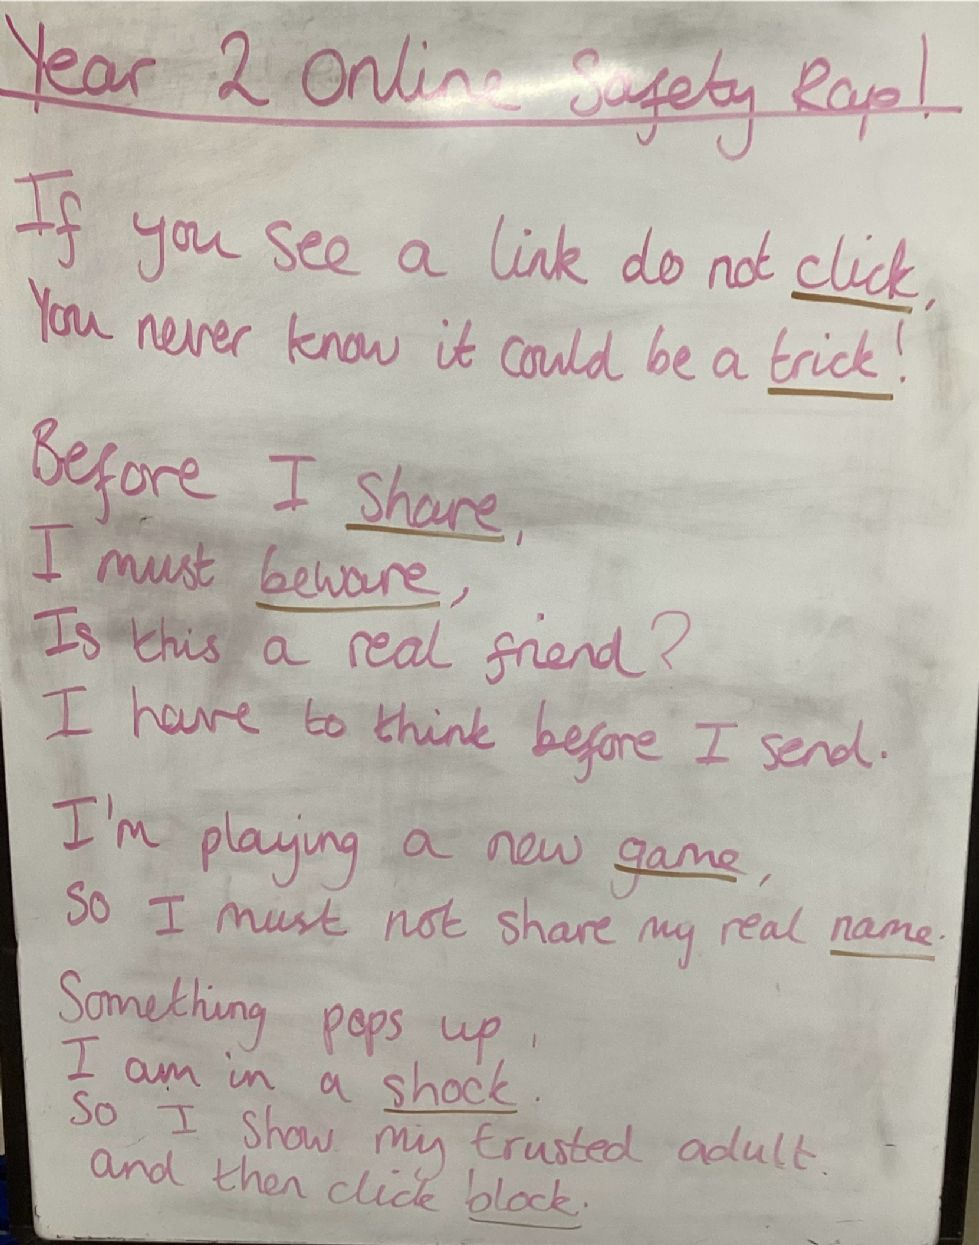 Year 2 Online Safety Rap!
If you see a link do not click,
You never know it could be a trick!
Before I share,
I must beware,
Is this a real friend?
I have to think before I send.
I'm playing a new game,
So I must not share my real name.
Something pops up,
I am in a shock.
So I show my trusted adult.
and then click block.